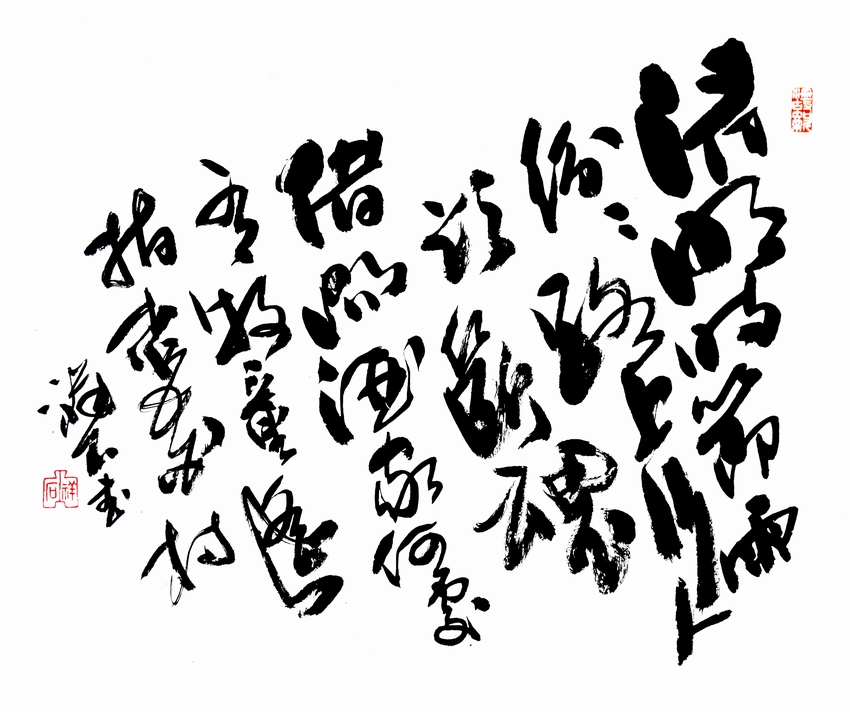 清明时節雨
纷纷路上行人
欲断魂
借问酒家何处
有牧童遥
指杏花村
祥石书